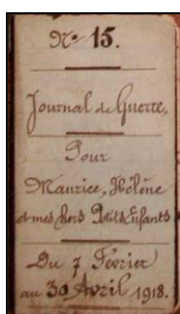 No 15.
Journal de Guerre,
Pour
Maurice, Hélène
et mes chers Petits Enfants
Du 7 Février
au 30 Avril 1918.